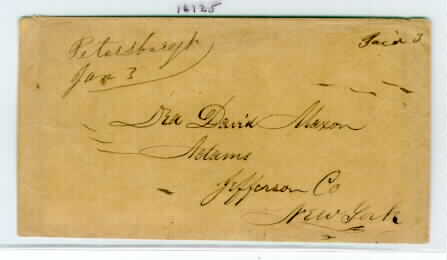 16125
Petersburgh
Jan 3
Paid 3
Dea David Maxon
Adams
Jefferson Co
New York